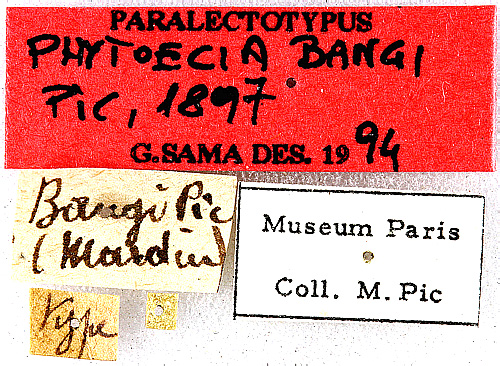 PARALECTOTYPUS
PHYTOECIA BANGI
PIC, 1897
G. SAMA DES. 1994
Bangi Pic
(Mardin)
Museum Paris
Coll. M. Pic
Type